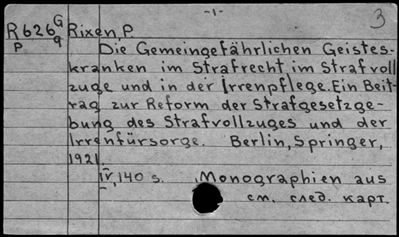 -1-
3
R626 G Rixen, P.
P 9
Die Gemeingefährlichen Geistes-
kranken im Strafrecht im Strafvoll
zuge und in der Irrenpflege. Ein Beit-
rag zur Reform der Strafgesetzge-
bung des Strafvollzuges und der
Irrenfürsorge. Berlin, Springer,
1921.
IV, 140 s. Monographien aus
см. след. карт.